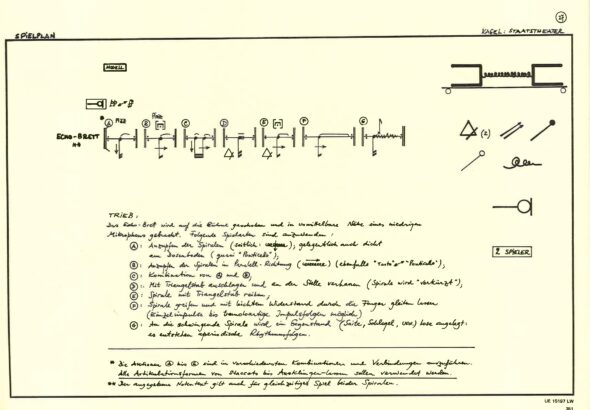 27
SPIELPLAN
KAGEL: STAATSTHEATER
MODELL
A PIZZ B PIZZ C D E F G
[m] [m]
ECHO-BRETT
**
(2)
2 SPIELER
TRIEB:
Das Echo-Brett wird auf die Bühne geschoben und in unmittelbare Nähe eines niedrigen
Mikrophons gebracht. Folgende Spielarten sind anzuwenden:
A: Anzupfen der Spiralen (seitlich: ), gelegentlich auch dicht
am Dosenboden (quasi "Ponticello");
B: Anzupfen der Spiralen in Parallel-Richtung ( ) (ebenfalls "Tasto" "Ponticello");
C: Kombination von A und B;
D: Mit Triangelstab anschlagen und an der Stelle verharren (Spirale wird "verkürzt");
E: Spirale mit Triangelstab reiben;
F: Spirale greifen und mit leichtem Widerstand durch die Finger gleiten lassen
(Einzelimpulse bis tremoloartige Impulsfolgen möglich)
G: An die schwingende Spirale wird ein Gegenstand (Saite, Schlegel, usw.) lose angelegt:
es entstehen aperiodische Rhythmusfolgen.
* Die Aktionen A bis G sind in verschiedensten Kombinationen und Verbindungen auszuführen.
Alle Artikulationsformen von Staccato bis Ausklingen-lassen sollen verwendet werden.
** Der angegebene Notentext gilt auch für gleichzeitiges Spiel beider Spiralen.
UE 15197 LW
351